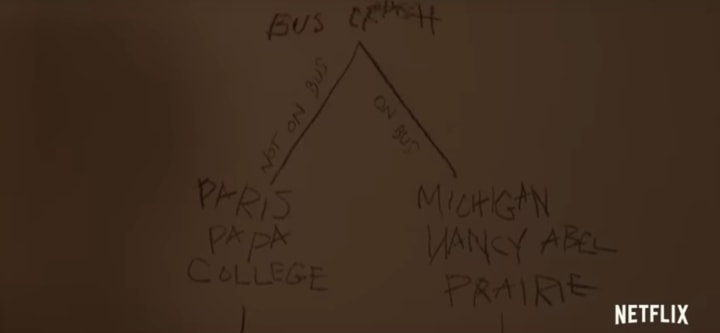 BUS CRASH
NOT ON BUS
ON BUS
PARIS
PAPA
COLLEGE
MICHIGAN
NANCY ABEL
PRAIRIE
NETFLIX